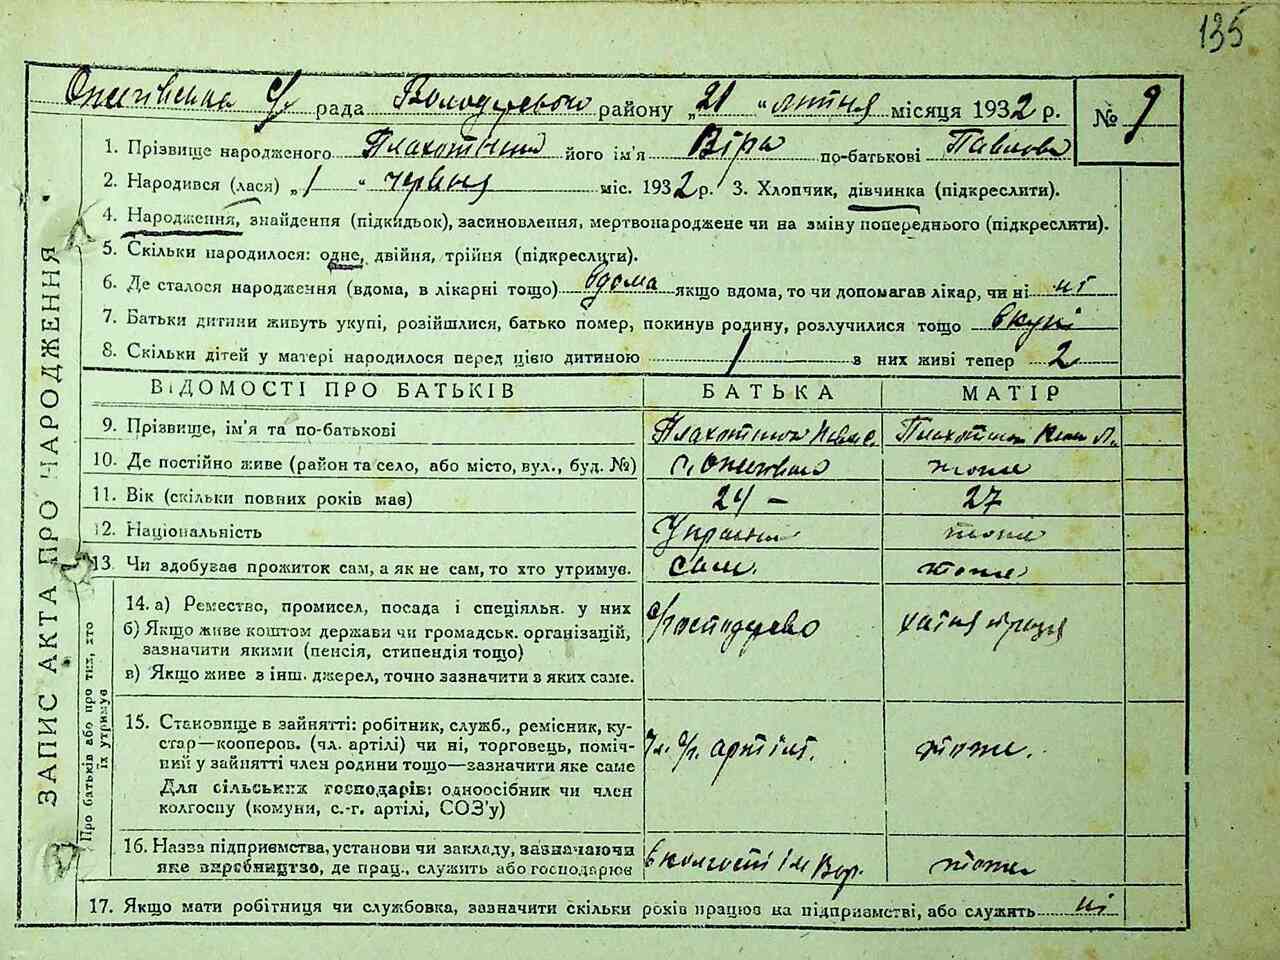 135
Ожегівська с/ рада Володарського району „21 “ липня місяця 1932 р. № 9
ЗАПИС АКТА ПРО НАРОДЖЕННЯ
1. Прізвище народженого його ім'я Віра по-батькові Павлова
2. Народився (лася) „1 “ червня міс. 1932 р. 3. Хлопчик, дівчинка (підкреслити).
4. Народження, знайдення (підкидьок), засиновлення, мертвонароджене чи на зміну попереднього (підкреслити).
5. Скільки народилося: одне, двійня, трійня (підкреслити).
6. Де сталося народження (вдома, в лікарні тощо) вдома якщо вдома, то чи допомагав лікар, чи ні ні
7. Батьки дитини живуть укупі, розійшлися, батько помер, покинув родину, розлучилися тощо вкупі
8. Скільки дітей у матері народилося перед цією дитиною 1 в них живі тепер 2
ВІДОМОСТІ ПРО БАТЬКІВ БАТЬКА МАТІР
9. Прізвище, ім'я та по-батькові
10. Де постійно живе (район та село, або місто, вул., буд. №) с. тоже
11. Вік (скільки повних років має) 24 – 27
12. Національність тоже
13. Чи здобував прожиток сам, а як не сам, то хто утримує. сам. тоже
Про батьків або про тих, хто їх утримує
14. а) Ремество, промисел, посада і спеціяльн. у них
б) Якщо живе коштом держави чи громадськ. організацій,
зазначити якими (пенсія, стипендія тощо)
в) Якщо живе з інш. джерел, точно зазначити в яких саме.
с/господарство хатня праця
15. Становище в зайнятті: робітник, служб., ремісник, ку-
стар—кооперов. (чл. артілі) чи ні, торговець, поміч-
ний у зайнятті член родини тощо—зазначити яке саме
Для сільських господарів: одноосібник чи член
колгоспу (комуни, с.-г. артілі, СОЗ'у)
чл. с/г. артілі. тоже.
16. Назва підприємства, установи чи закладу, зазначаючи
яке виробництво, де прац., служить або господарює
в колгоспі ім Вор. тоже
17. Якщо мати робітниця чи службовка, зазначити скільки років працює на підприємстві, або служить ні